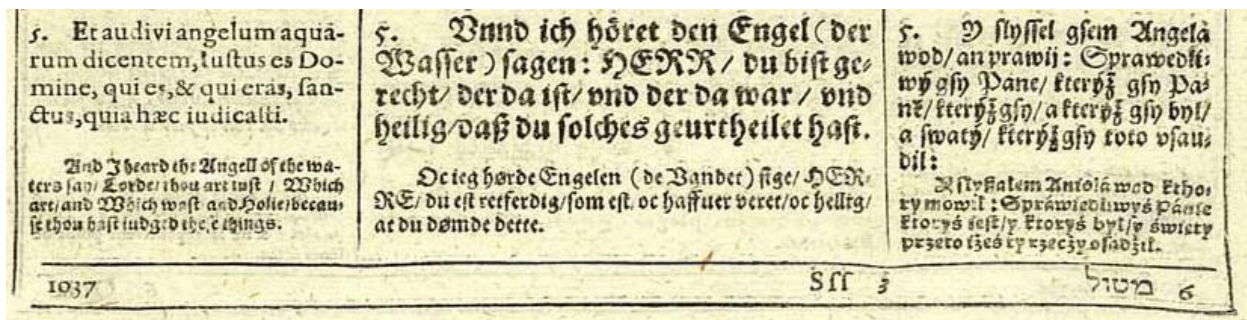 5. Et audivi angelum aquā-
rum dicentem, Iustus es Do-
mine, qui es, & qui eras, san-
ctus, quia hæc iudicasti.
And I heard the Angell of the wa-
ters say/ Lorde/ thou art iust / Which
art/ and Which wast and Holie/ becau-
se thou hast iudged these things.
5. Vnnd ich höret den Engel (der
Wasser) sagen: HERR/ du bist ge-
recht/ der da ist/ vnd der da war/ vnd
heilig/ daß du solches geurtheilet hast.
Oc ieg hørde Engelen (de Vandet) sige/ HER-
RE/ du est retferdig/ som est, oc haffuer veret/ oc hellig/
at du dømde dette.
5. Y slyssel gsem Angelá
wod/ an prawij: Sprawedli-
wý gsy Pane/ kterýž gsy Pa-
ně/ kterýž gsy/ a kterýž gsy byl/
a swatý/ kterýž gsy toto vsau-
dil:
Y słyßałem Aniołá wod ktho-
ry mowił: Spráwiedliwyś Pánie
ktoryś iest/ y ktoryś był/ y święty
przeto iżeś ty rzeczy osądźił.
1037 Sſſ 3 מטול 6